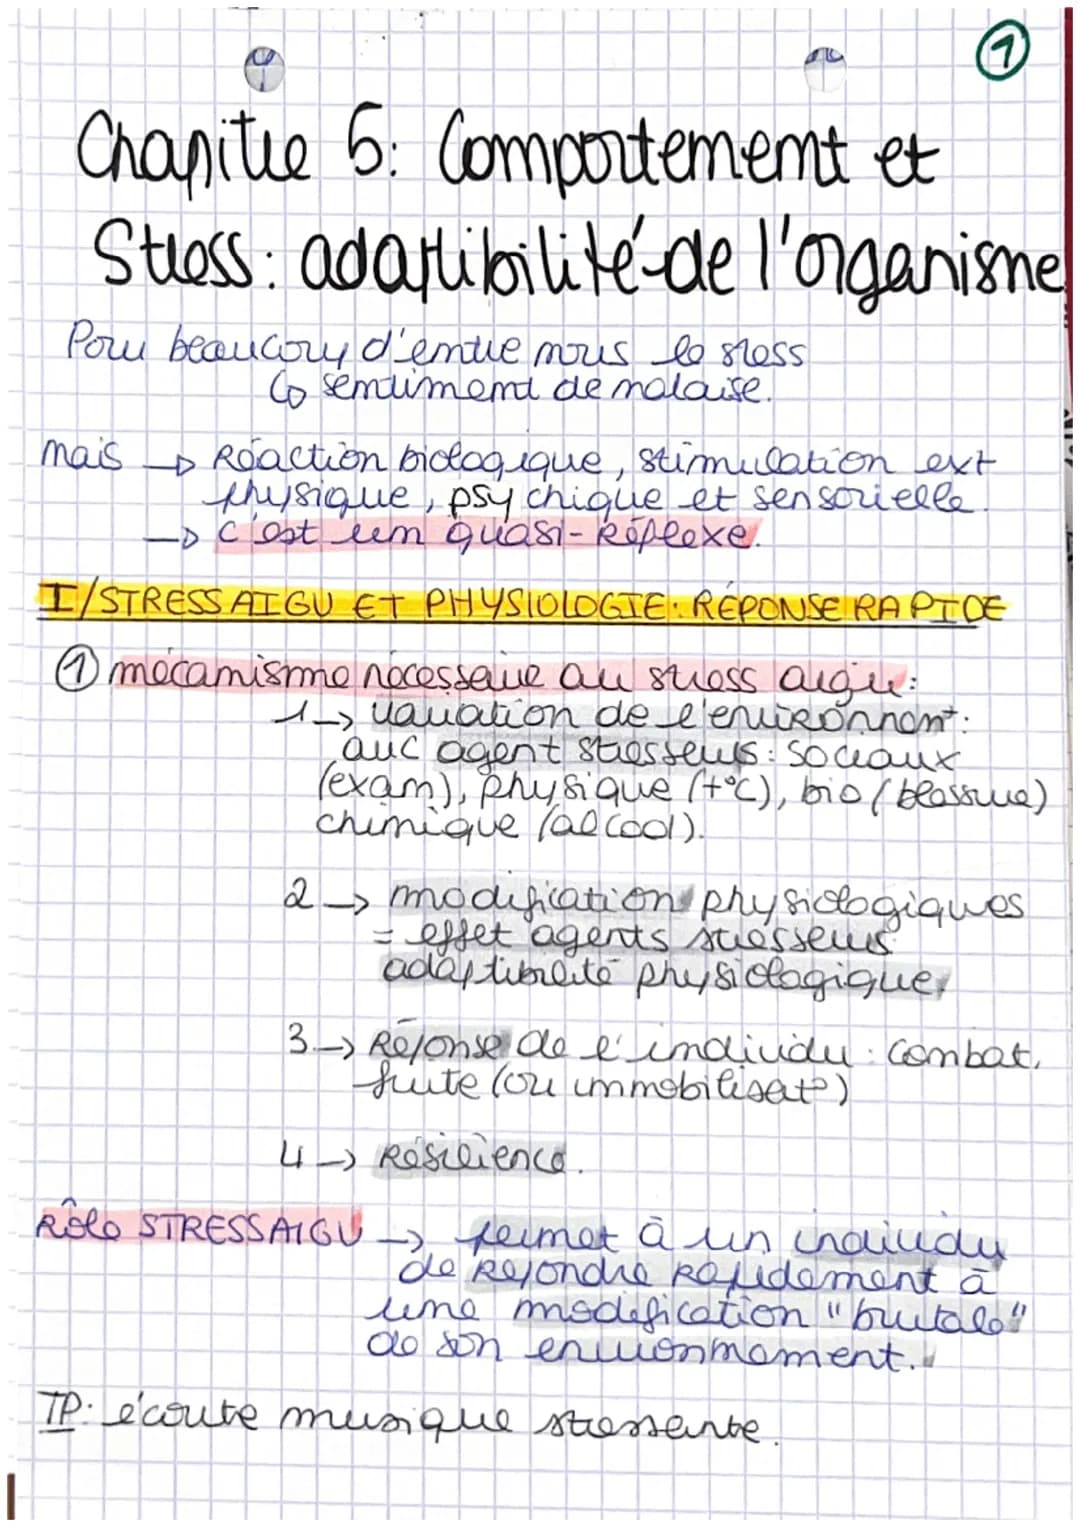 1
Chapitre 5: Comportement et
Stress: adaptibilité de l'organisme
Pour beaucoup d'entre nous le stess
↳ sentiment de malaise.
mais → Réaction biologique, stimulation ext
physique, psychique et sensorielle.
→ C'est un quasi-Réflexe.
I/STRESS AIGU ET PHYSIOLOGIE: RÉPONSE RAPIDE
① mécanisme nécessaire au stress aigu:
1→ variation de l'environnemt:
auc agent stresseurs: sociaux
(exam), physique (t°C), bio (blessure)
chimique (alcool).
2→ modification physiologiques
= effet agents stresseurs
adaptibilité physiologique.
3→ Réponse de l'individu: Combat,
fuite (ou immobilisat°)
4→ Résilience.
Rôle STRESS AIGU → permet à un individu
de Répondre Rapidement à
une modification "brutale"
de son environnement.
TP: écoute musique stressante.